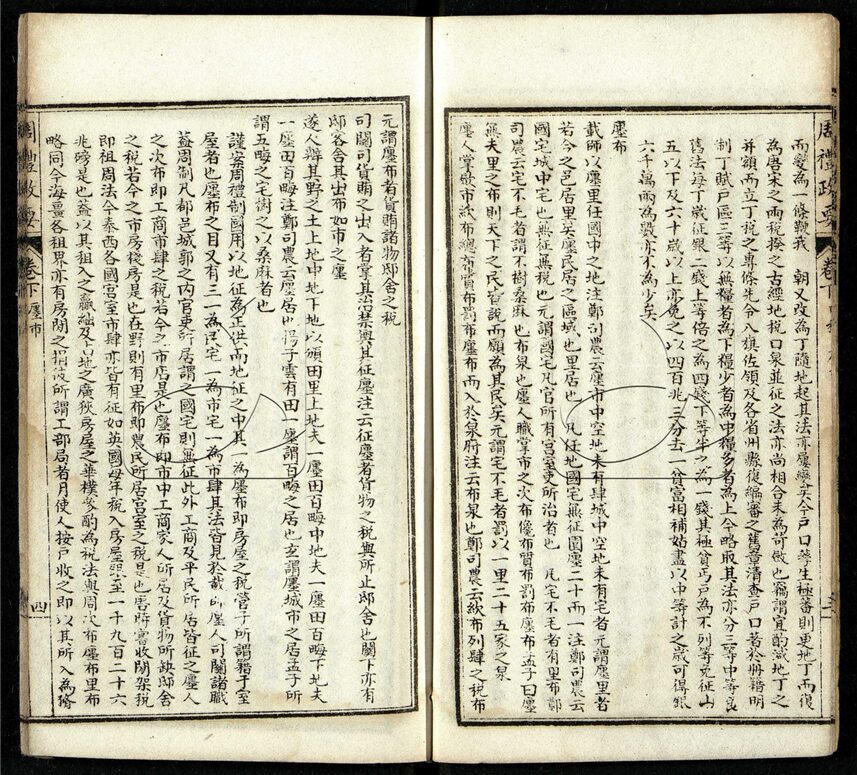 而變為一條鞭我　朝又改為丁隨地起其法亦屢變矣今戶口孳生極蕃則更地丁而復
為唐宋之兩稅揆之古經地稅口泉並征之法亦尚相合未為苛斂也竊謂宜酌減地丁之
并額而立丁稅之專條先令八旗佐領及各省州縣復編審之舊章清查戶口著於冊籍明
制丁賦戶區三等以無糧者為下糧少者為中糧多者為上今略取其法亦分三等中等良
舊法每丁歲征銀二錢上等倍之為四錢下等半之為一錢其極貧丐戶為不列等免征山
五以下及六十歲以上亦免之以四百兆三分去一貧富相補姑盡以中等計之歲可得銀
六千萬兩為數亦不為少矣
廛布
載師以廛里任國中之地注鄭司農云廛市中空地未有肆城中空地未有宅者元謂廛里者
若今之邑居里矣廛民居之區域也里居也　凡任地國宅無征園廛二十而一注鄭司農云
國宅城中宅也無征無稅也元謂國宅凡官所有宮室吏所治者也　凡宅不毛者有里布鄭
司農云宅不毛者謂不樹桑麻也布泉也廛人職掌市之次布儳布質布罰布廛布孟子曰廛
無夫里之布則天下之民皆說而願為其民矣元謂宅不毛者罰以一里二十五家之泉
廛人掌斂市絘布總布質布罰布廛布而入於泉府注云布泉也鄭司農云絘布列肆之稅布
周禮政要
卷下
元謂廛布者貨賄諸物邸舍之稅
司關司貨賄之出入者掌其治禁與其征廛注云征廛者貨物之稅與所止邸舍也關下亦有
邸客舍其出布如市之廛
遂人辨其野之土上地中地下地以頒田里上地夫一廛田百畮中地夫一廛田百畮下地夫
一廛田百畮注鄭司農云廛居也揚子雲有田一廛謂百畮之居也玄謂廛城市之居孟子所
謂五畮之宅樹之以桑麻者也
謹案周禮制國用以地征為正供而地征之中其一為廛布即房屋之稅管子所謂籍于室
屋者也廛布之目又有三一為民宅一為市宅一為市肆其法皆見於載師廛人司關諸職
蓋周制凡都邑城郭之內官吏所居謂之國宅則無征此外工商及平民所居皆征之廛人
之次布即工商市肆之稅若今之市店是也廛布即市中工商家人所居及貨物所鈌邸舍
之稅若今之市房棧房是也在野則有里布即農民所居宮室之稅是也唐時嘗收間架稅
即祖周法今泰西各國宮室市肆亦皆有征如英國每年稅入房屋照至一千九百二十六
兆磅是也蓋以其租入之贏絀及占地之廣狹房屋之華樸參酌為稅法與周次布廛布里布
略同今海畺各租界亦有房閒之捐彼所謂工部局者月使人按戶收之即以其所入為脩
周禮政要
卷下　廛布
四